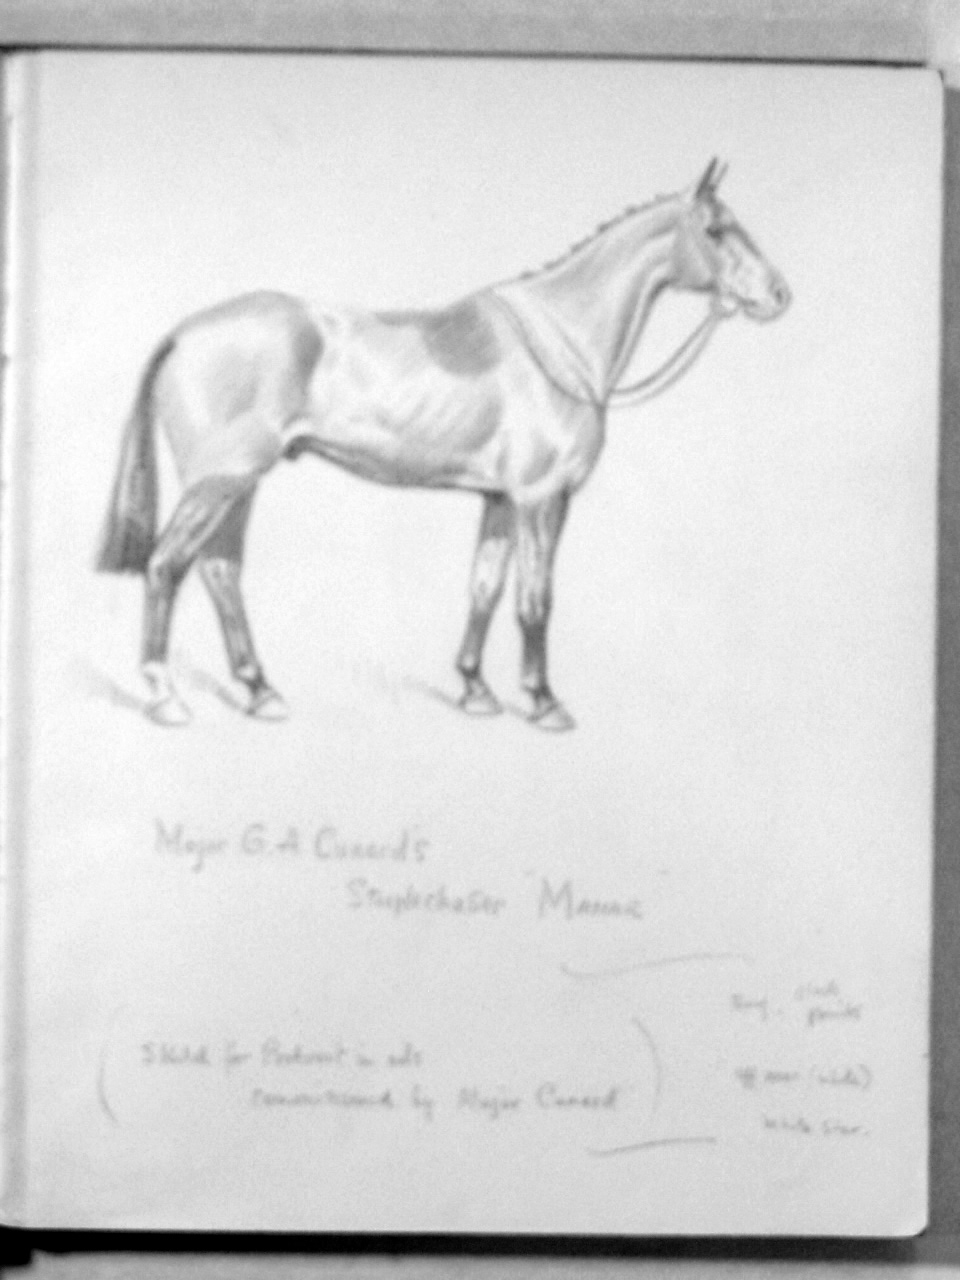 Major G.A Cunard's
Steeplechaser "Manar"
(Sketch for Portrait in oils
commissioned by Major Cunard)
Bay. black
points
off near (white)
White Star.